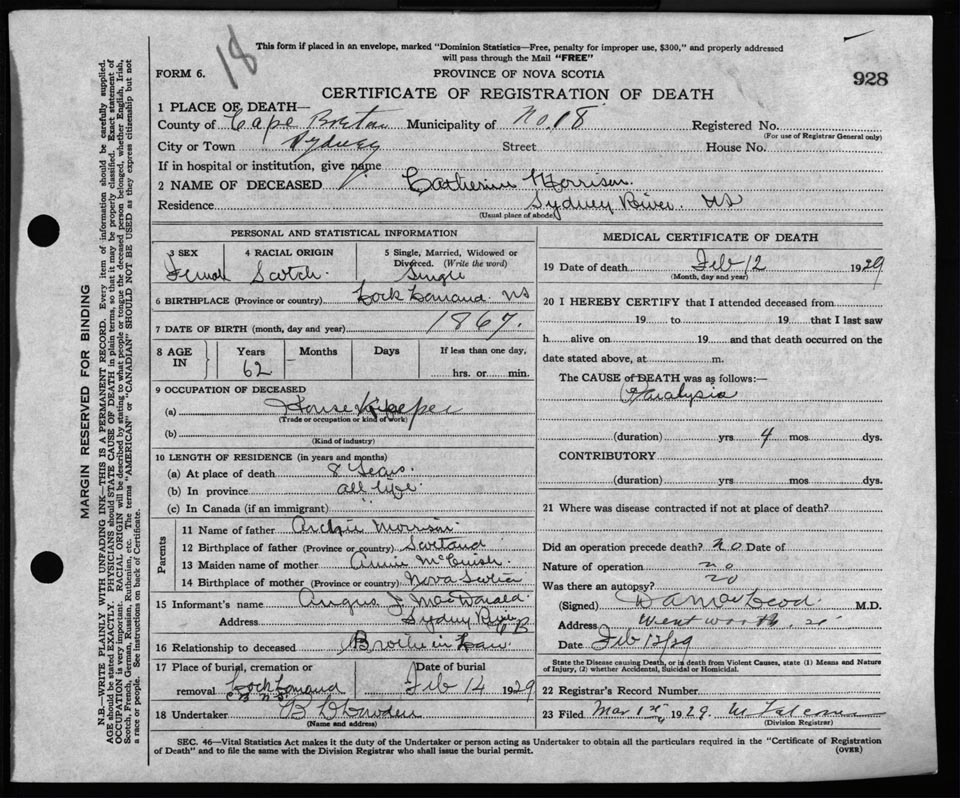 18
This form if placed in an envelope, marked "Dominion Statistics—Free, penalty for improper use, $300," and properly addressed
will pass through the Mail "FREE"
FORM 6. PROVINCE OF NOVA SCOTIA 928
CERTIFICATE OF REGISTRATION OF DEATH
1 PLACE OF DEATH—
County of Cape Breton Municipality of No. 18 Registered No.
(For use of Registrar General only)
City or Town Sydney Street House No.
If in hospital or institution, give name
2 NAME OF DECEASED Catherine Morrison
Residence Sydney River. NS
(Usual place of abode)
PERSONAL AND STATISTICAL INFORMATION
3 SEX 4 RACIAL ORIGIN 5 Single, Married, Widowed or
Divorced. (Write the word)
Femal Scotch Single
6 BIRTHPLACE (Province or country) Lock Lomand. NS
7 DATE OF BIRTH (month, day and year) 1867.
8 AGE IN Years Months Days If less than one day,
62 hrs. or min.
9 OCCUPATION OF DECEASED
(a) House Keeper
(Trade or occupation or kind of work)
(b)
(Kind of industry)
10 LENGTH OF RESIDENCE (in years and months)
(a) At place of death 8 Years.
(b) In province all life.
(c) In Canada (if an immigrant)
Parents
11 Name of father Archie Morrison
12 Birthplace of father (Province or country) Scotland
13 Maiden name of mother Annie McCuish
14 Birthplace of mother (Province or country) Nova Scotia
15 Informant's name Angus J. MacDonald
Address Sydney River CB
16 Relationship to deceased Brother in Law
17 Place of burial, cremation or Date of burial
removal Lock Lomand Feb 14 1929
C B N S
18 Undertaker
(Name and address)
MEDICAL CERTIFICATE OF DEATH
19 Date of death Feb 12 1929
(Month, day and year)
20 I HEREBY CERTIFY that I attended deceased from
19 to 19 that I last saw
h alive on 19 and that death occurred on the
date stated above, at m.
The CAUSE of DEATH was as follows:—
Paralysis
(duration) yrs 4 mos dys.
CONTRIBUTORY
(duration) yrs mos dys.
21 Where was disease contracted if not at place of death?
Did an operation precede death? no Date of
Nature of operation no
Was there an autopsy? no
(Signed) D A MacLeod M.D.
Address Wentworth
Date Feb 12/29
State the Disease causing Death, or in death from Violent Causes, state (1) Means and Nature
of Injury, (2) whether Accidental, Suicidal or Homicidal.
22 Registrar's Record Number
23 Filed Mar 1st 1929.
(Division Registrar)
SEC. 46—Vital Statistics Act makes it the duty of the Undertaker or person acting as Undertaker to obtain all the particulars required in the "Certificate of Registration
of Death" and to file the same with the Division Registrar who shall issue the burial permit. (OVER)
MARGIN RESERVED FOR BINDING
N.B.—WRITE PLAINLY WITH UNFADING INK—THIS IS A PERMANENT RECORD. Every item of information should be carefully supplied.
AGE should be stated EXACTLY. PHYSICIANS should STATE CAUSE OF DEATH in plain terms, so that it may be properly classified. Exact statement of
OCCUPATION is very important. RACIAL ORIGIN will be described by stating to what people or tongue the deceased person belonged, whether English, Irish,
Scotch, French, German, Russian, Ruthenian, etc. The terms "AMERICAN" or "CANADIAN" SHOULD NOT BE USED as they express citizenship but not
a race or people. See instructions on back of Certificate.